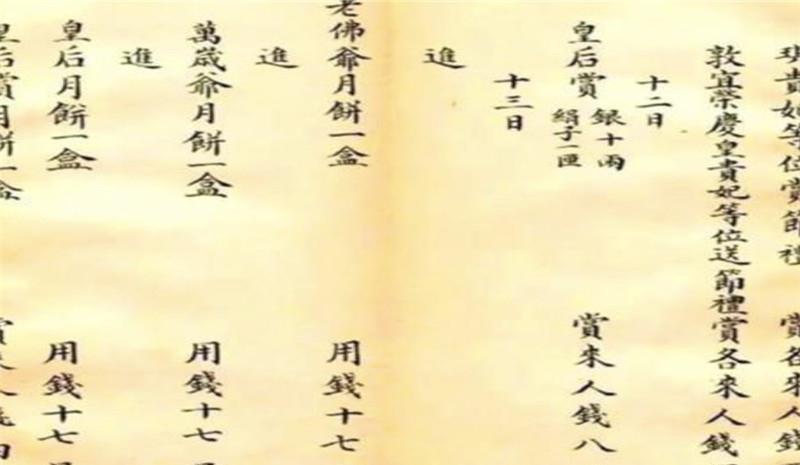 琪貴妃等位賞節禮 賞各來人錢
敦宜榮慶皇貴妃等位送節禮賞各來人錢
十二日
皇后賞 銀十兩 絹子一匣 賞來人錢八
十三日
進
老佛爺月餅一盒 用錢十七
進
萬歲爺月餅一盒 用錢十七
進
皇后月餅一盒 用錢十七
皇后賞月餅一盒 賞來人